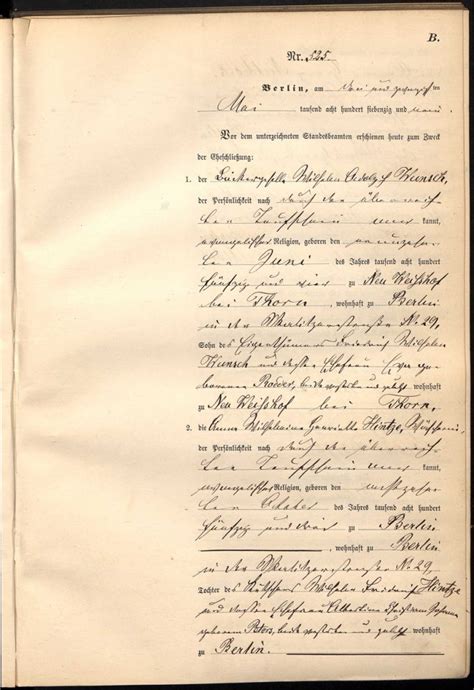 B.
Nr. 525.
Berlin, am drei und zwanzig ten
Mai tausend acht hundert siebenzig und neun.
Vor dem unterzeichneten Standesbeamten erschienen heute zum Zweck
der Eheschließung:
1. der Bäckergeselle Wilhelm Adolph Wunsch,
der Persönlichkeit nach durch die überreich-
ten Taufschein aner kannt,
evangelischer Religion, geboren den neunzehn-
ten Juni des Jahres tausend acht hundert
fünfzig und vier zu Neu Weißhof
bei Thorn, wohnhaft zu Berlin
in der No 29,
Sohn des Eigenthümers Friedrich Wilhelm
Wunsch und dessen Ehefrau Eva ge-
borenen beide verstorben und zuletzt wohnhaft
zu Neu Weißhof bei Thorn.
2. die Anna Wilhelmine Henriette Hintze,
der Persönlichkeit nach durch die überreich-
ten Taufschein aner kannt,
evangelischer Religion, geboren den
ten des Jahres tausend acht hundert
fünfzig und drei zu Berlin
, wohnhaft zu Berlin
in der No 29,
Tochter des Wilhelm Friedrich Hintze
und dessen Ehefrau Albertine
geborenen beide verstorben und zuletzt wohnhaft
zu Berlin.